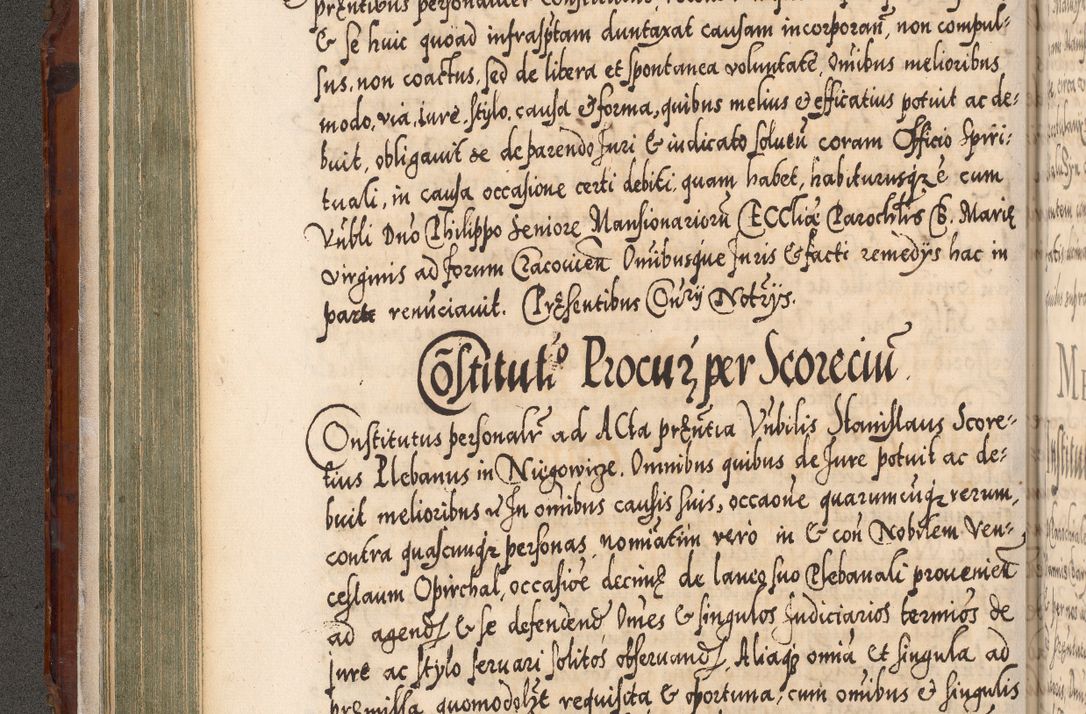 & se huic quoad infrasptam duntaxat causam incorporan̄, non compul=
sus, non coactus, sed de libera et spontanea voluntate, Omībus melioribus
modo, via, iure, stylo, causa & forma, quibus melius et efficatius potuit ac de=
buit, obligavit se de parendo Juri & iudicato solven̄ coram Officio Spiri=
tuali, in causa occasione certi debiti, quam habet, habiturusq̄ȝ ē cum
Vnbli Dnō Philippo Seniore Mansionariorū ECCliæ Parochlis B. Mariæ
virginis ad forum Cracovien̄ Omībusque Juris & facti remedÿs hac in
parte renūciavit. Præsentibus Con̄ÿ Notrÿs.
Cōstitutio Procurȝ per Scoreciū.
Constitutus personalr̄ ad ACta præn̄tia Vnbilis Stanislaus Score=
tius Plebanus in Niegowicze. Omnibus quibus de Jure potuit ac de=
buit melioribus In omībus causis suis, occaone quarumcuqȝ rerum,
contra quascunqȝ personas, nomīatim vero in & con̄ Nobilem Ven=
ceslaum Opirchal, occasiōe decimæ de laneo suo Plebanali provenien̄
ad agend & se defendend Omēs & singulos Judiciarios termīos de
Jure ac stylo servari solitos observand, Aliaqȝ omīa et singula ad
præmissa quomodolȝt requisita & oportuna, cum omībus et singulis